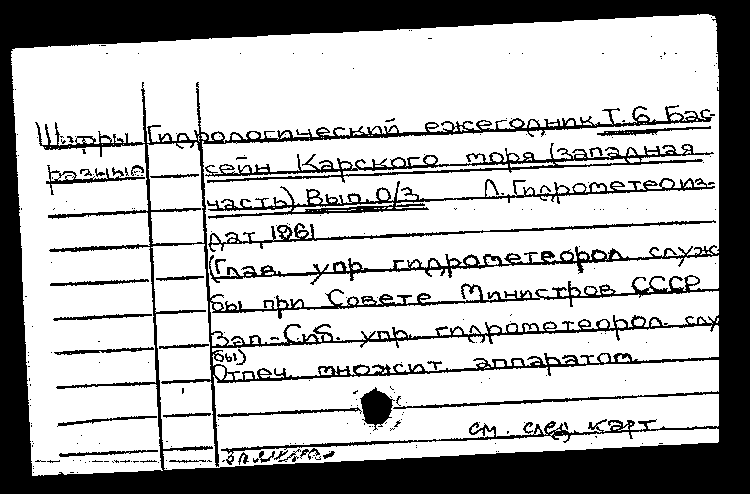 Шифры Гидрологический ежегодник. Т. 6. Бас-
разные сейн Карского моря (западная
часть). Вып. 0/3. Л., Гидрометеоиз-
дат, 1961
(Глав. упр. гидрометеорол. служ-
бы при Совете Министров СССР
Зап.-Сиб. упр. гидрометеорол. служ
бы)
Отпеч. множит. аппаратом.
см. след. карт.